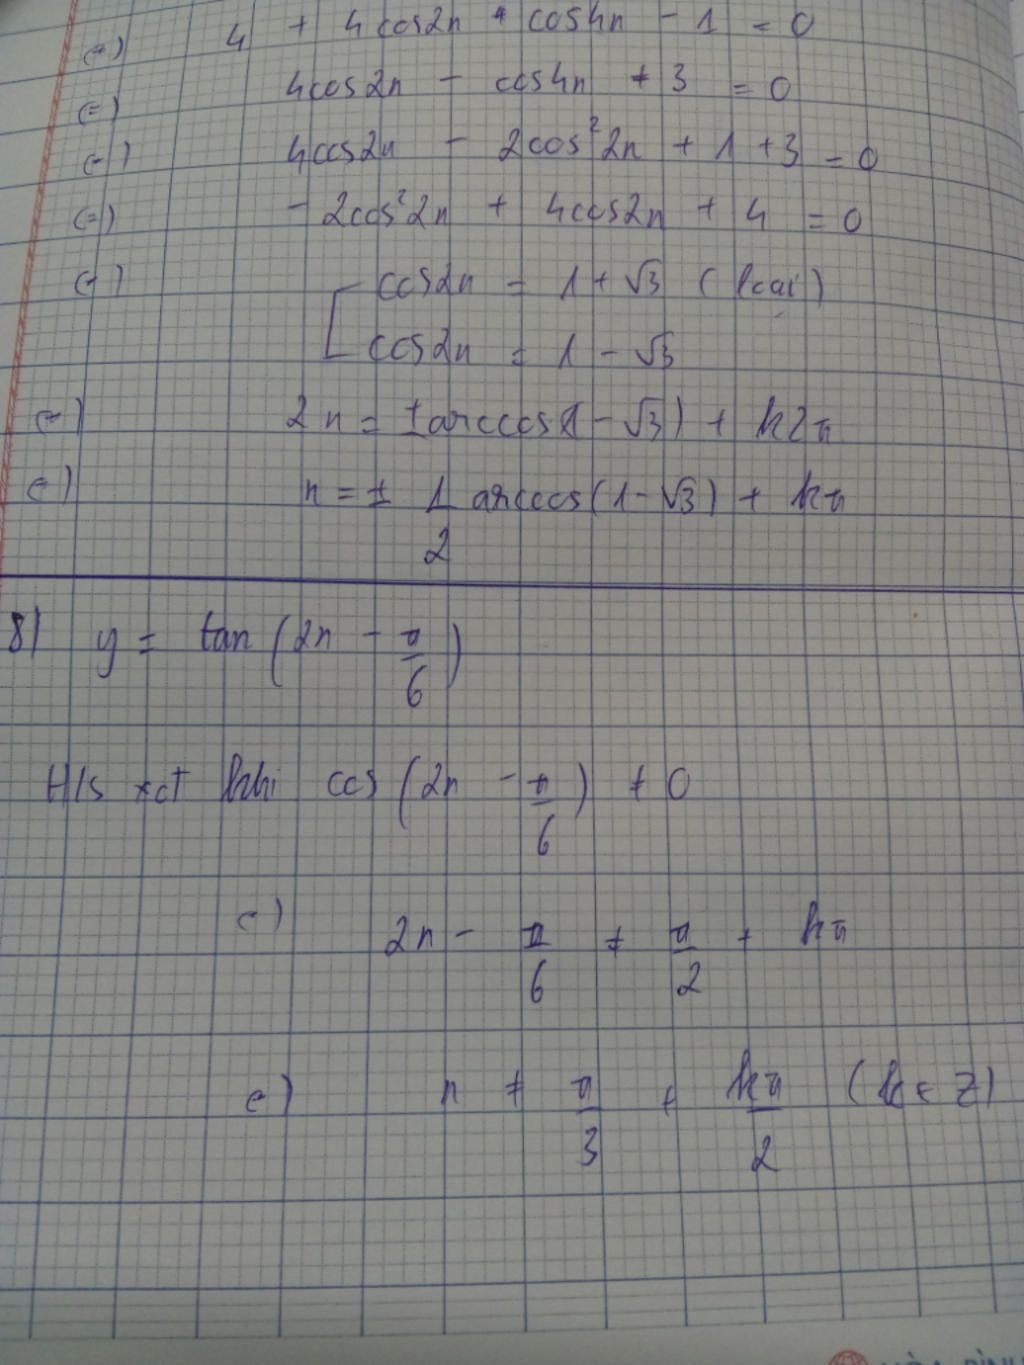 (=) 4 + 4cos2x - cos4x - 1 = 0
(=) 4cos2x - cos4x + 3 = 0
(=) 4cos2x - 2cos²2x + 1 + 3 = 0
(=) - 2cos²2x + 4cos2x + 4 = 0
(=) [ cos2x = 1 + √3 (loại)
cos2x = 1 - √3
(=) 2x = ±arccos(1 - √3) + k2π
(=) x = ± 1/2 arccos(1 - √3) + kπ
8) y = tan(2x - π/6)
H/s xđ khi cos(2x - π/6) ≠ 0
(=) 2x - π/6 ≠ π/2 + kπ
(=) x ≠ π/3 + kπ/2 (k ∈ Z)